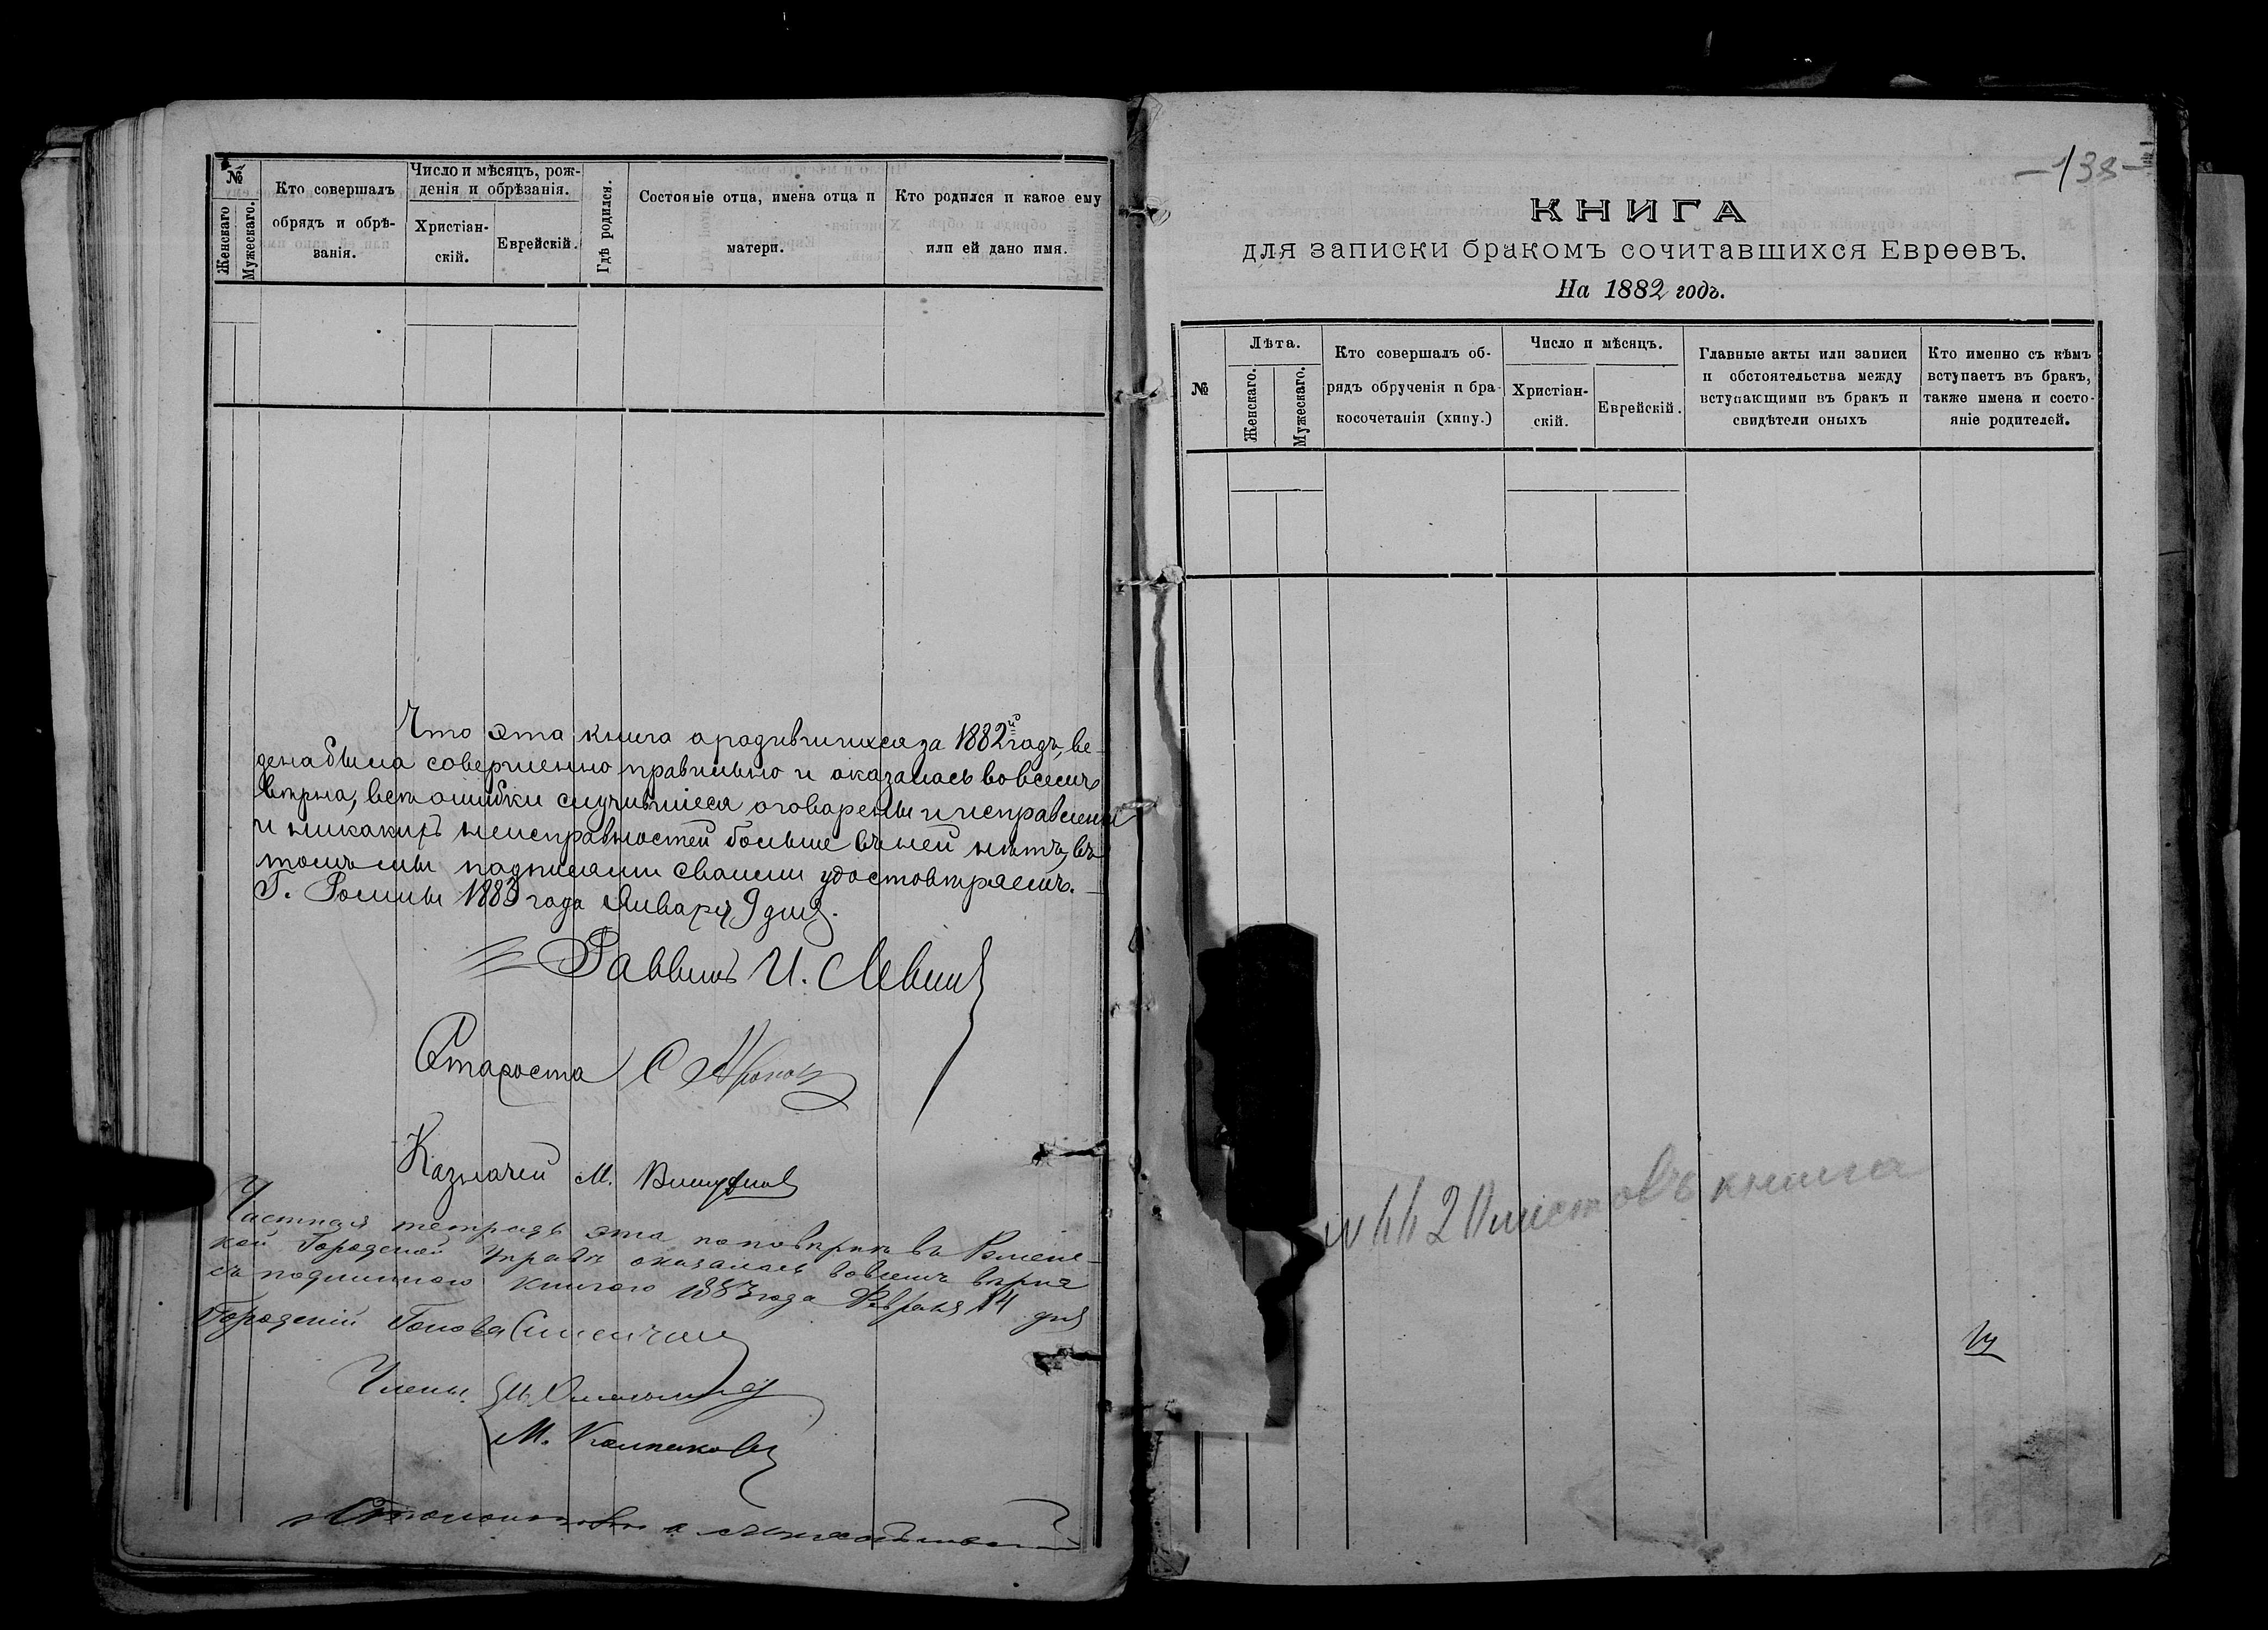 №
Женскаго
Мужескаго.
Кто совершалъ
обрядъ и обрѣ-
занія.
Число и мѣсяцъ, рож-
денія и обрѣзанія.
Христіан-
скій.
Еврейскій.
Гдѣ родился.
Состояніе отца, имена отца и
матери.
Кто родился и какое ему
или ей дано имя.
Что эта книга о родившихся за 1882й годъ, ве-
дена была совершенно правильно и оказалась во всемъ
вѣрна, всѣ ошибки случившіеся оговарены и исправлены
и никакихъ неисправностей больше въ ней нѣтъ, въ
томъ мы подписями своими удостовѣряемъ.
Г. Ромны 1883 года Января 9 дня.
Раввинъ И. Левинъ
Староста С
Казначей М.
Частная тетрадь эта по повѣркѣ въ Ромен-
кой Городской Управѣ оказалась во всемъ вѣрна
съ подлинною книгою 1883 года Февраля 14 дня
Городской Голова
Члены:
М.
138
КНИГА
для записки бракомъ сочитавшихся Евреевъ.
На 1882 годъ.
№
Лѣта.
Женскаго.
Мужескаго.
Кто совершалъ об-
рядъ обрученія и бра-
косочетанія (хипу.)
Число и мѣсяцъ.
Христіан-
скій.
Еврейскій.
Главные акты или записи
и обстоятельства между
вступающими въ бракъ и
свидѣтели оныхъ
Кто именно съ кѣмъ
вступаетъ въ бракъ,
также имена и состо-
яніе родителей.
листовъ книга